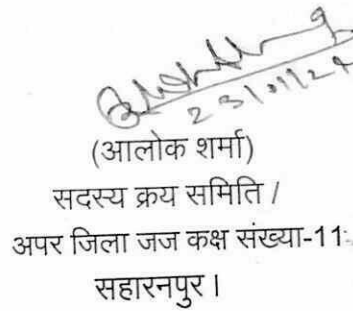 23/01/24
(आलोक शर्मा)
सदस्य क्रय समिति /
अपर जिला जज कक्ष संख्या-11
सहारनपुर।